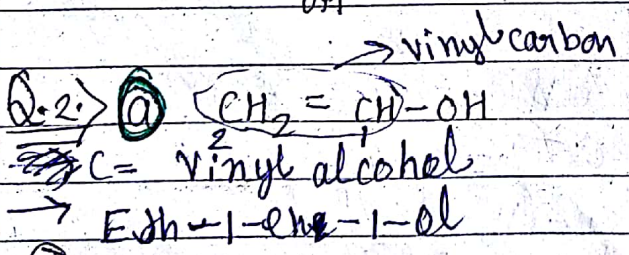 vinyl carbon
Q.2.> (a) CH₂ = CH-OH
2 1
C = vinyl alcohol
→ Eth-1-ene-1-ol